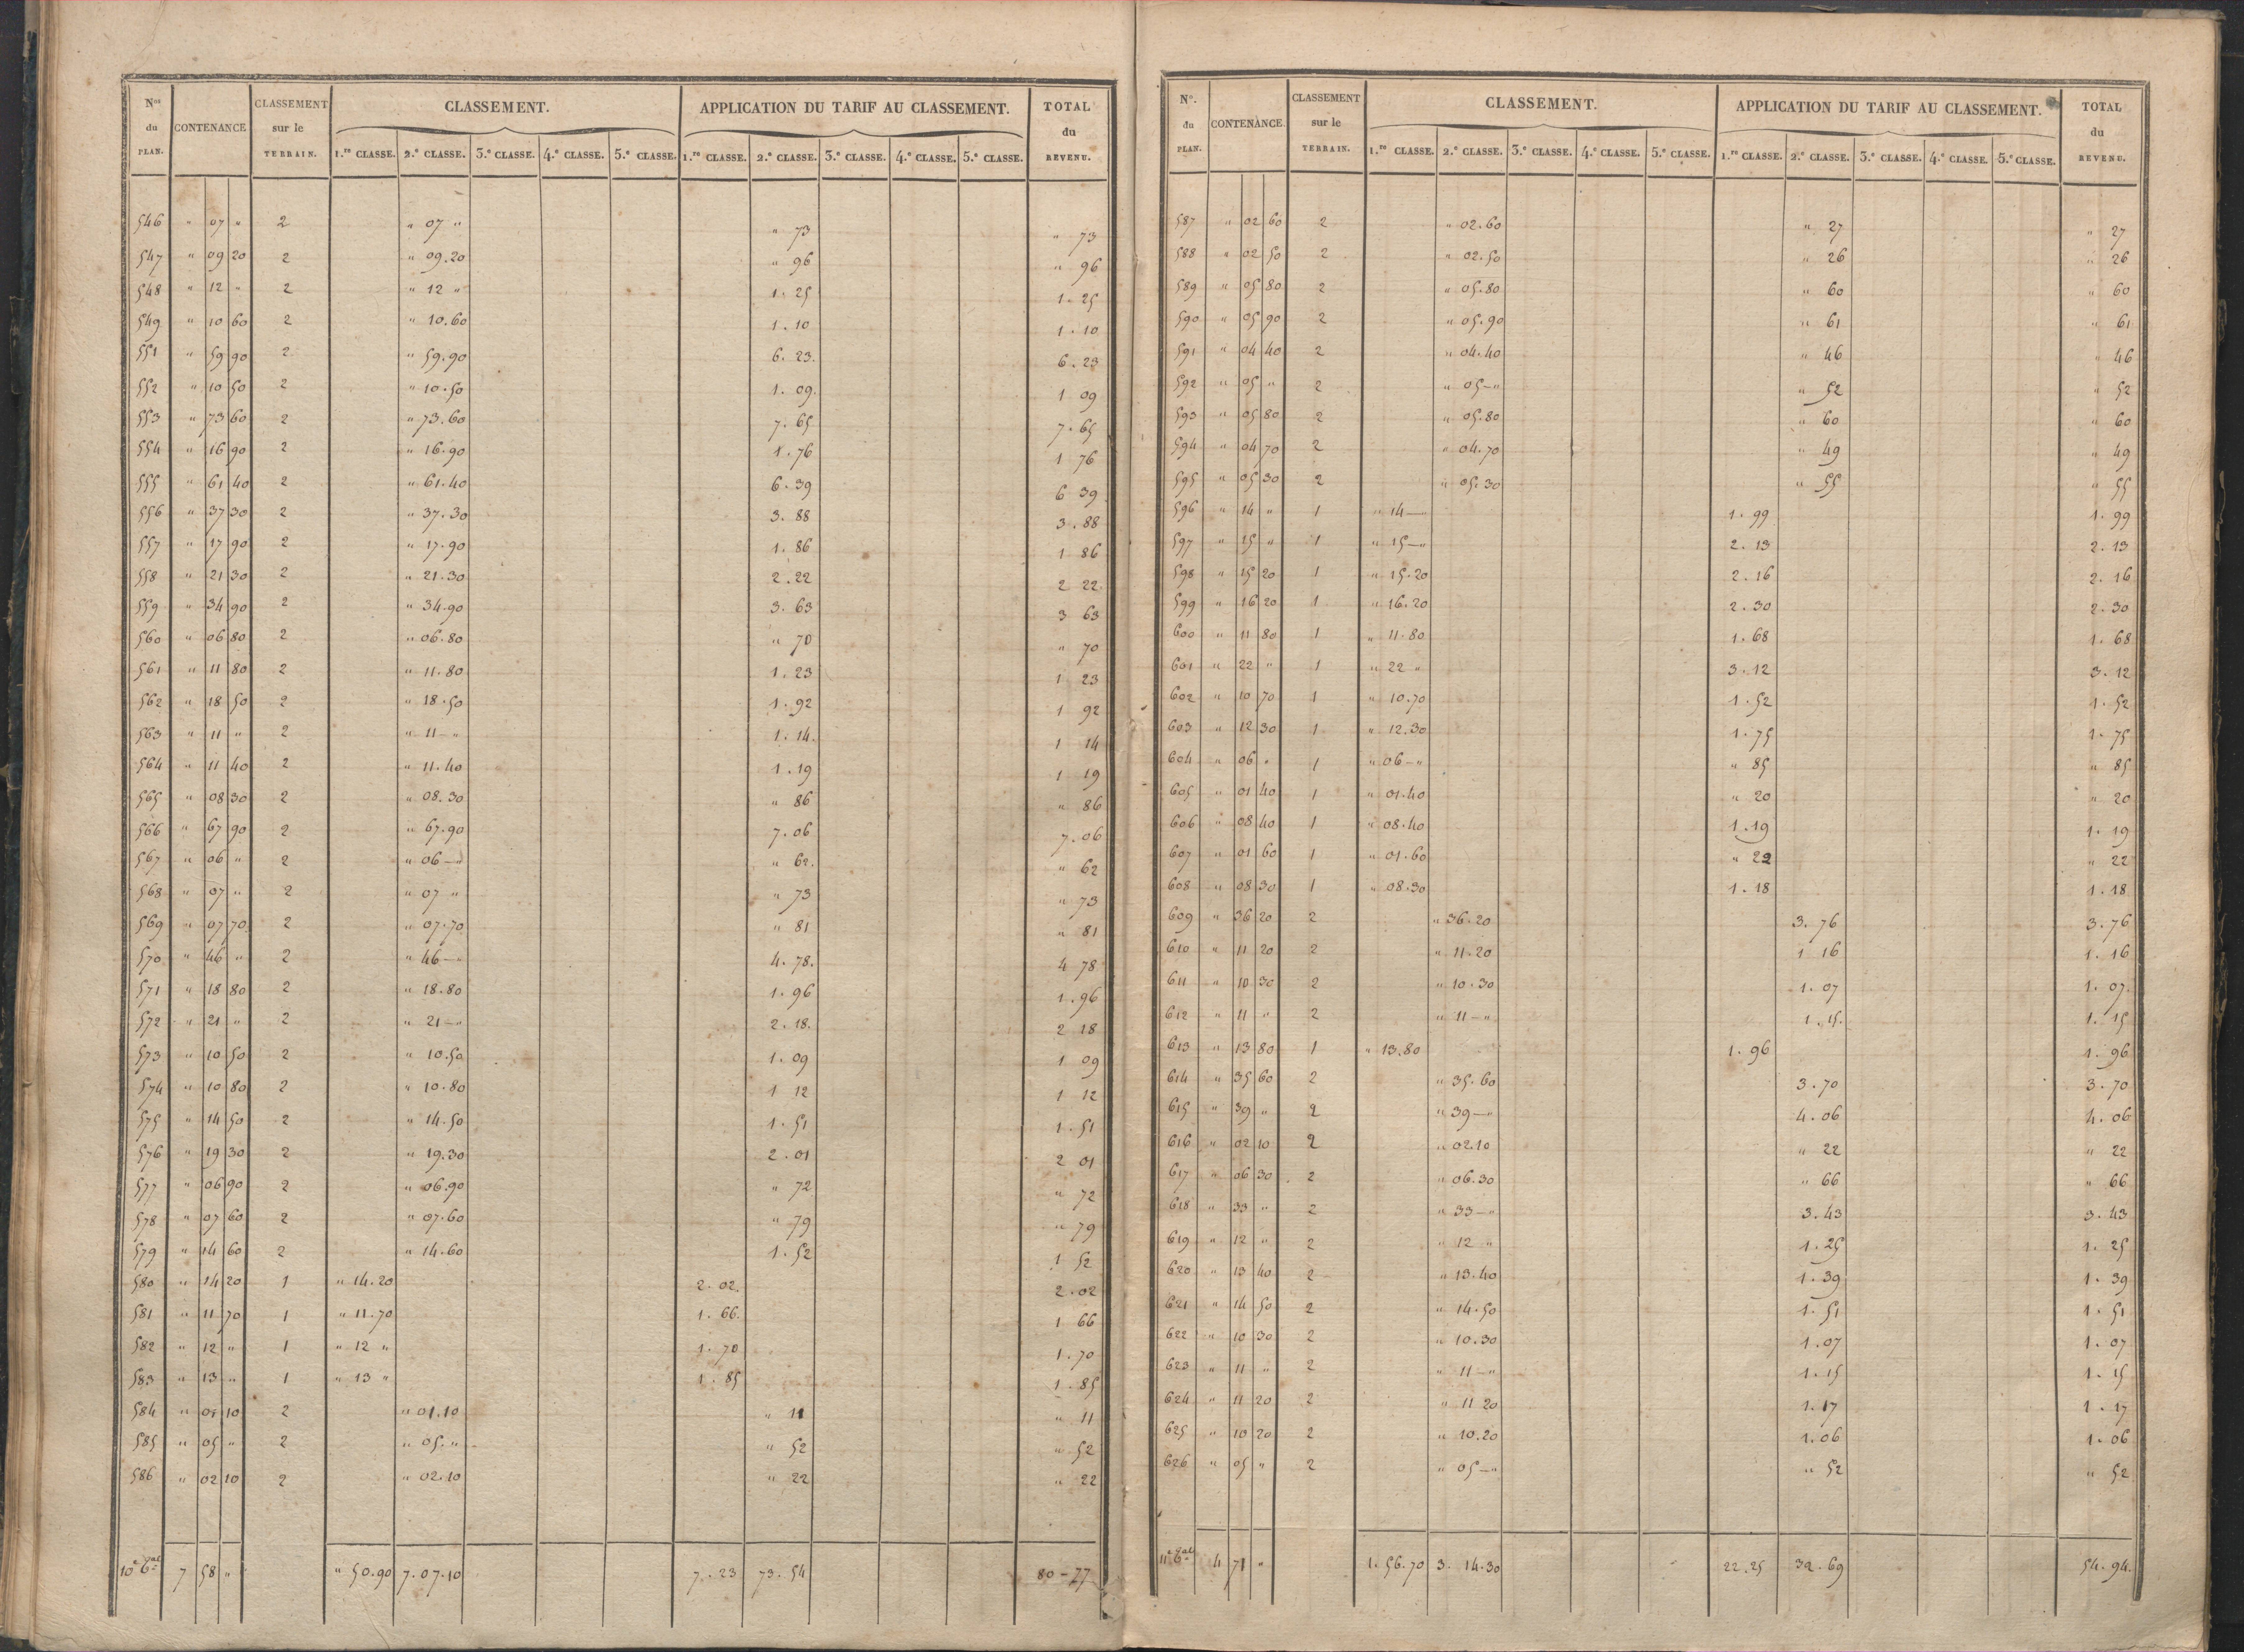 Nos du PLAN. CONTENANCE CLASSEMENT sur le TERRAIN. CLASSEMENT. APPLICATION DU TARIF AU CLASSEMENT. TOTAL du REVENU.
1.re CLASSE. 2.e CLASSE. 3.e CLASSE. 4.e CLASSE. 5.e CLASSE. 1.re CLASSE. 2.e CLASSE. 3.e CLASSE. 4.e CLASSE. 5.e CLASSE.
546 " 07 " 2 " 07 " " 73 " 73
547 " 09 20 2 " 09.20 " 96 " 96
548 " 12 " 2 " 12 " 1. 25 1. 25
549 " 10 60 2 " 10.60 1. 10 1. 10
551 " 59 90 2 " 59.90 6. 23. 6. 23
552 " 10 50 2 " 10.50 1. 09. 1 09
553 " 73 60 2 " 73.60 7. 65 7. 65
554 " 16 90 2 " 16.90 1. 76 1 76
555 " 61 40 2 " 61.40 6. 39 6 39
556 " 37 30 2 " 37.30 3. 88 3. 88
557 " 17 90 2 " 17.90 1. 86 1 86
558 " 21 30 2 " 21.30 2. 22 2 22
559 " 34 90 2 " 34.90 3. 63 3 63
560 " 06 80 2 " 06.80 " 70 " 70
561 " 11 80 2 " 11.80 1. 23 1 23
562 " 18 50 2 " 18.50 1. 92 1 92
563 " 11 " 2 " 11 — " 1. 14. 1 14
564 " 11 40 2 " 11.40 1. 19 1 19
565 " 08 30 2 " 08.30 " 86 " 86
566 " 67 90 2 " 67.90 7. 06 7. 06
567 " 06 " 2 " 06 — " " 62. " 62
568 " 07 " 2 " 07 " " 73 " 73
569 " 07 70 2 " 07.70 " 81 " 81
570 " 46 " 2 " 46 — " 4. 78. 4 78
571 " 18 80 2 " 18.80 1. 96 1. 96
572 " 21 " 2 " 21 — " 2. 18. 2 18
573 " 10 50 2 " 10.50 1. 09 1 09
574 " 10 80 2 " 10.80 1 12 1 12
575 " 14 50 2 " 14.50 1. 51 1. 51
576 " 19 30 2 " 19.30 2. 01 2 01
577 " 06 90 2 " 06.90 " 72 " 72
578 " 07 60 2 " 07.60 " 79 " 79
579 " 14 60 2 " 14.60 1. 52 1 52
580 " 14 20 1 " 14.20 2. 02. 2. 02
581 " 11 70 1 " 11.70 1. 66. 1 66
582 " 12 " 1 " 12 " 1. 70 1. 70
583 " 13 " 1 " 13 " 1. 85 1. 85
584 " 01 10 2 " 01.10 " 11 " 11
585 " 05 " 2 " 05. " " 52 " 52
586 " 02 10 2 " 02.10 " 22 " 22
10e 6al 7 58 " " 50.90 7.07.10 7. 23 73. 54 80 - 77
N°. du PLAN. CONTENANCE. CLASSEMENT sur le TERRAIN. CLASSEMENT. APPLICATION DU TARIF AU CLASSEMENT. TOTAL du REVENU.
1.re CLASSE. 2.e CLASSE. 3.e CLASSE. 4.e CLASSE. 5.e CLASSE. 1.re CLASSE. 2.e CLASSE. 3.e CLASSE. 4.e CLASSE. 5.e CLASSE.
587 " 02 60 2 " 02.60 " 27 " 27
588 " 02 50 2 " 02.50 " 26 " 26
589 " 05 80 2 " 05.80 " 60 " 60
590 " 05 90 2 " 05.90 " 61 " 61
591 " 04 40 2 " 04.40 " 46 " 46
592 " 05 " 2 " 05 — " " 52 " 52
593 " 05 80 2 " 05.80 " 60 " 60
594 " 04 70 2 " 04.70 " 49 " 49
595 " 05 30 2 " 05.30 " 55 " 55
596 " 14 " 1 " 14 — " 1. 99 1. 99
597 " 15 " 1 " 15 — " 2. 13 2. 13
598 " 15 20 1 " 15.20 2. 16 2. 16
599 " 16 20 1 " 16.20 2. 30 2. 30
600 " 11 80 1 " 11.80 1. 68 1. 68
601 " 22 " 1 " 22 " 3. 12 3. 12
602 " 10 70 1 " 10.70 1. 52 1. 52
603 " 12 30 1 " 12.30 1. 75 1. 75
604 " 06 " 1 " 06 — " " 85 " 85
605 " 01 40 1 " 01.40 " 20 " 20
606 " 08 40 1 " 08.40 1. 19 1. 19
607 " 01 60 1 " 01.60 " 22 " 22
608 " 08 30 1 " 08.30 1. 18 1. 18
609 " 36 20 2 " 36.20 3. 76 3. 76
610 " 11 20 2 " 11.20 1 16 1. 16
611 " 10 30 2 " 10.30 1. 07 1. 07.
612 " 11 " 2 " 11 — " 1. 15. 1. 15
613 " 13 80 1 " 13.80 1. 96 1. 96
614 " 35 60 2 " 35.60 3. 70 3. 70
615 " 39 " 2 " 39 — " 4. 06 4. 06
616 " 02 10 2 " 02.10 " 22 " 22
617 " 06 30 2 " 06.30 " 66 " 66
618 " 33 " 2 " 33 — " 3. 43 3. 43
619 " 12 " 2 " 12 " 1. 25 1. 25
620 " 13 40 2 " 13.40 1. 39 1. 39
621 " 14 50 2 " 14.50 1. 51 1. 51
622 " 10 30 2 " 10.30 1. 07 1. 07
623 " 11 " 2 " 11 — " 1. 15 1. 15
624 " 11 20 2 " 11 20 1. 17 1. 17
625 " 10 20 2 " 10.20 1. 06 1. 06
626 " 05 " 2 " 05 — " " 52 " 52
11e 6al 4 71 " 1. 56.70 3. 14.30 22. 25 32. 69 54. 94.